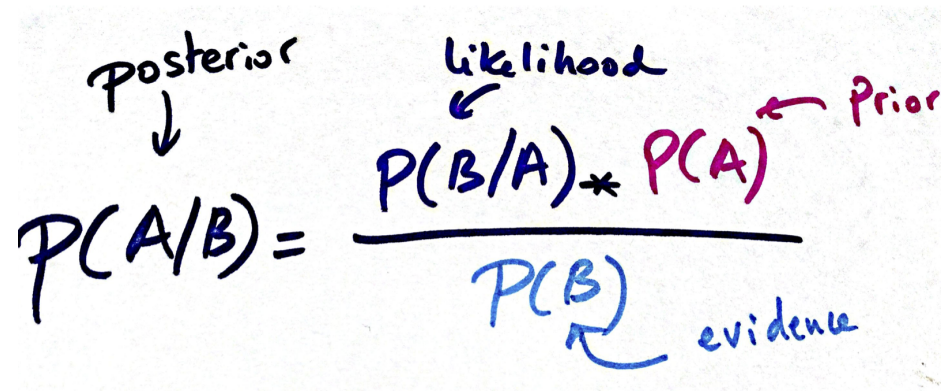 posterior
likelihood
Prior
P(A/B) = P(B/A) * P(A)
P(B)
evidence